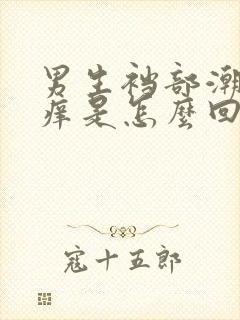 男生裆部潮
痒是怎麼回
寇十五郎